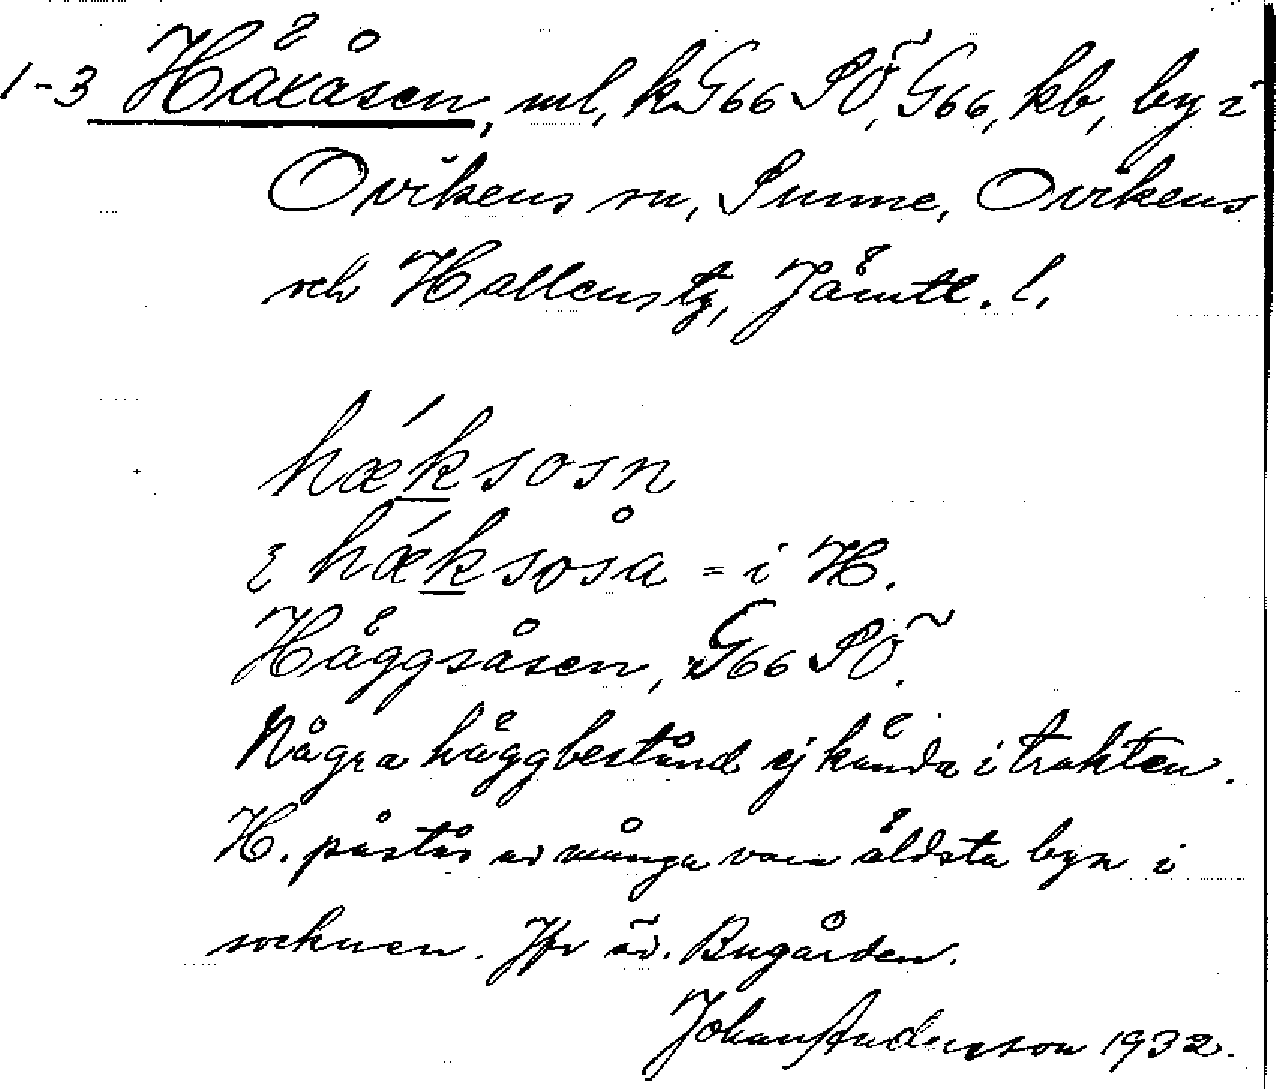 1-3 Häxåsen, ml, k G66 SÖ, G66, kb, by i
Ovikens sn, Sunne, Ovikens
och Hallens tg, Jämtl. l.
hǽksosn
ɛ hǽksåsa = i H.
Häggsåsen, G66 SÖ.
Några häggbestånd ej kända i trakten.
H. påstås av många vara äldsta byn i
socknen. Jfr äv. Bugården.
Johan Andersson 1932.